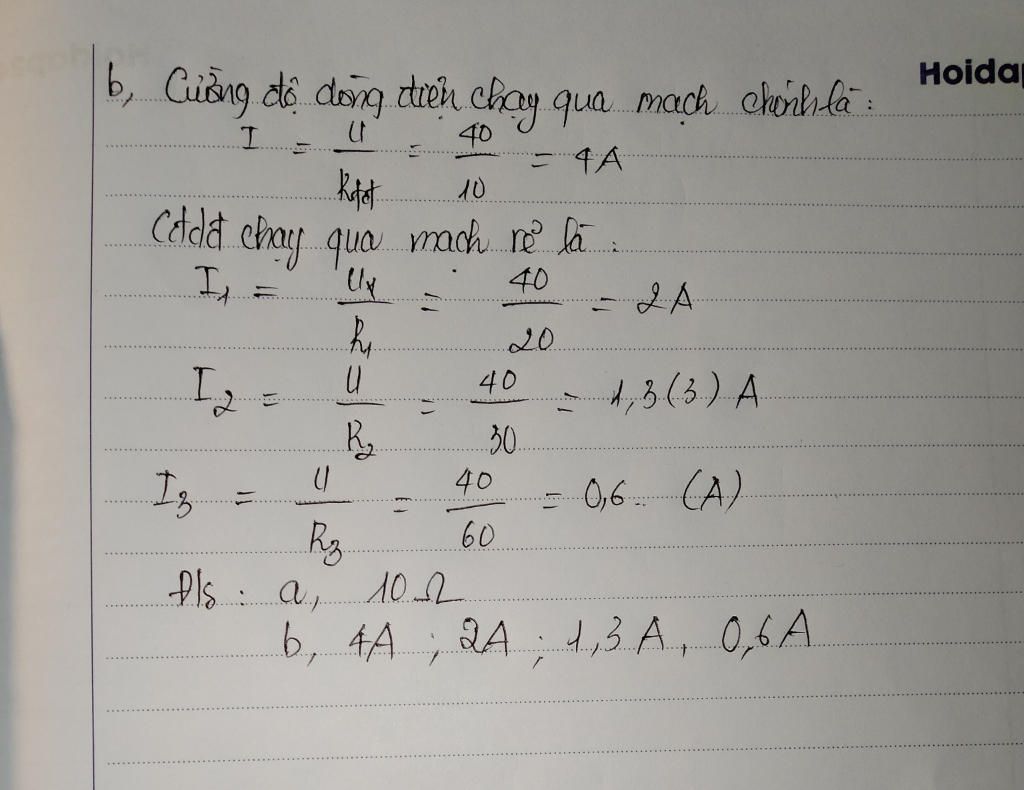 Hoidap
b, Cường độ dòng điện chạy qua mạch chính là:
I = U/Rtđ = 40/10 = 4A
Cđdđ chạy qua mạch rẽ là:
I₁ = U₁/R₁ = 40/20 = 2A
I₂ = U/R₂ = 40/30 = 1,3(3) A
I₃ = U/R₃ = 40/60 = 0,6.. (A)
Đ/s: a, 10Ω
b, 4A; 2A; 1,3A, 0,6A